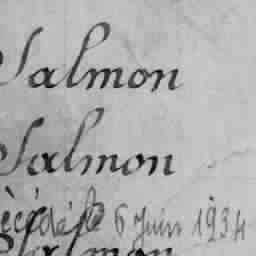 Salmon
Salmon
Décédée le 6 Juin 1934
Salmon